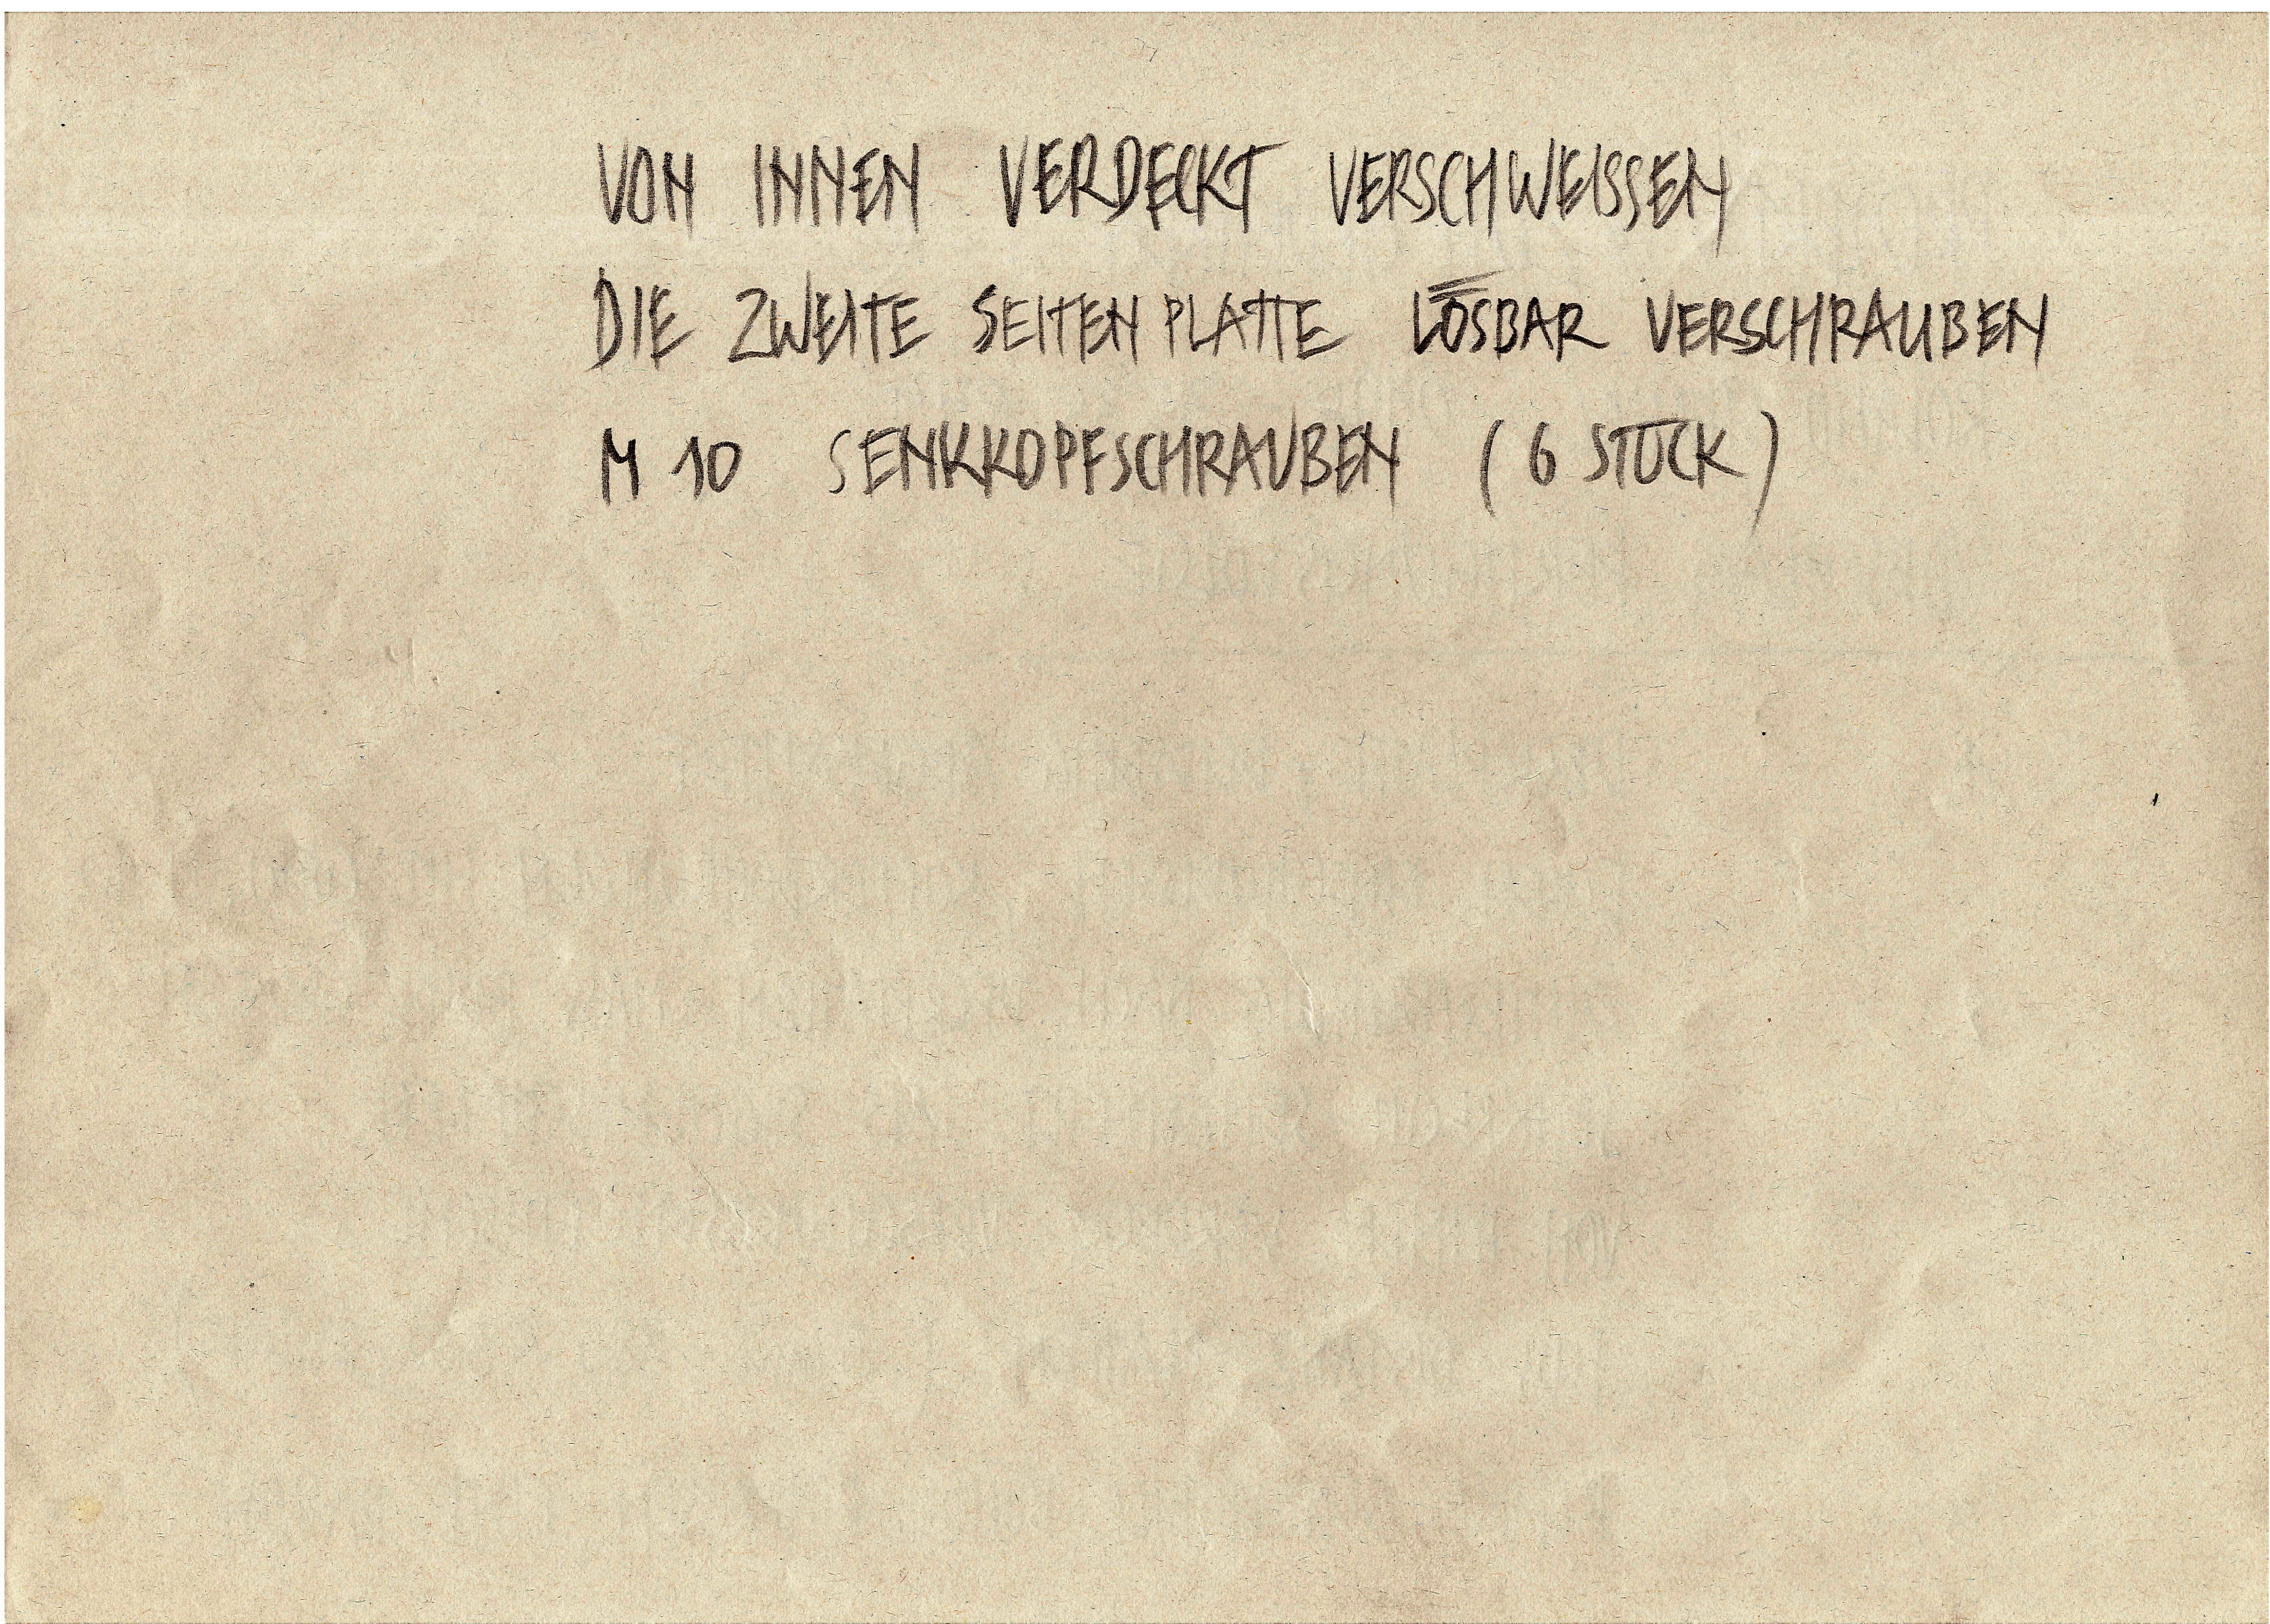 VON INNEN VERDECKT VERSCHWEISSEN
DIE ZWEITE SEITENPLATTE LÖSBAR VERSCHRAUBEN
M 10 SENKKOPFSCHRAUBEN (6 STÜCK)